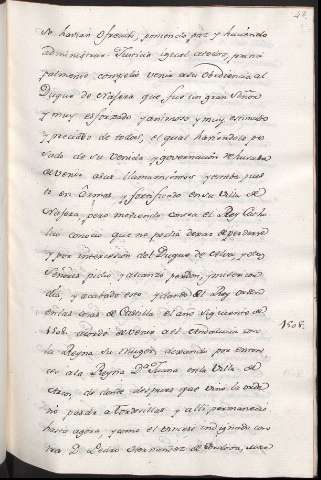 42
se havian ofrecido, poniendo paz y haciendo
administrar Justicia igual a todos, prin
palmente compelió venir a su obediencia al
Duque de Naxera que fue un gran Señor
y muy esforzado y animoso, y muy estimado
y preciado de todos, el qual haviendole pe
sado de su venida y governacion rehusava
de venir a sus llamamientos y estaba pues
to en Armas, y fortificado en su Villa de
Naxera, pero moviendo contra el el Rey Catho
lico conocio que no podia dexar de perderse
y por intercesion del Duque de Alva, y otros
Señores, pidio y alcanzó perdon, y misericor
dia, y acabado esto y dando el Rey orden
en las cosas de Castilla el año siguiente de
1508. acordó de venir a el Andalucia con 1508.
la Reyna su Muger, dexando por entonc
es a la Reyna Dª Juana en la Villa de
de donde despues que vino la orde
nó pasar a Tordesillas y alli permaneció
hasta agora, y como el viniese indignado con
tra D. Pedro Hernandez de Cordova,